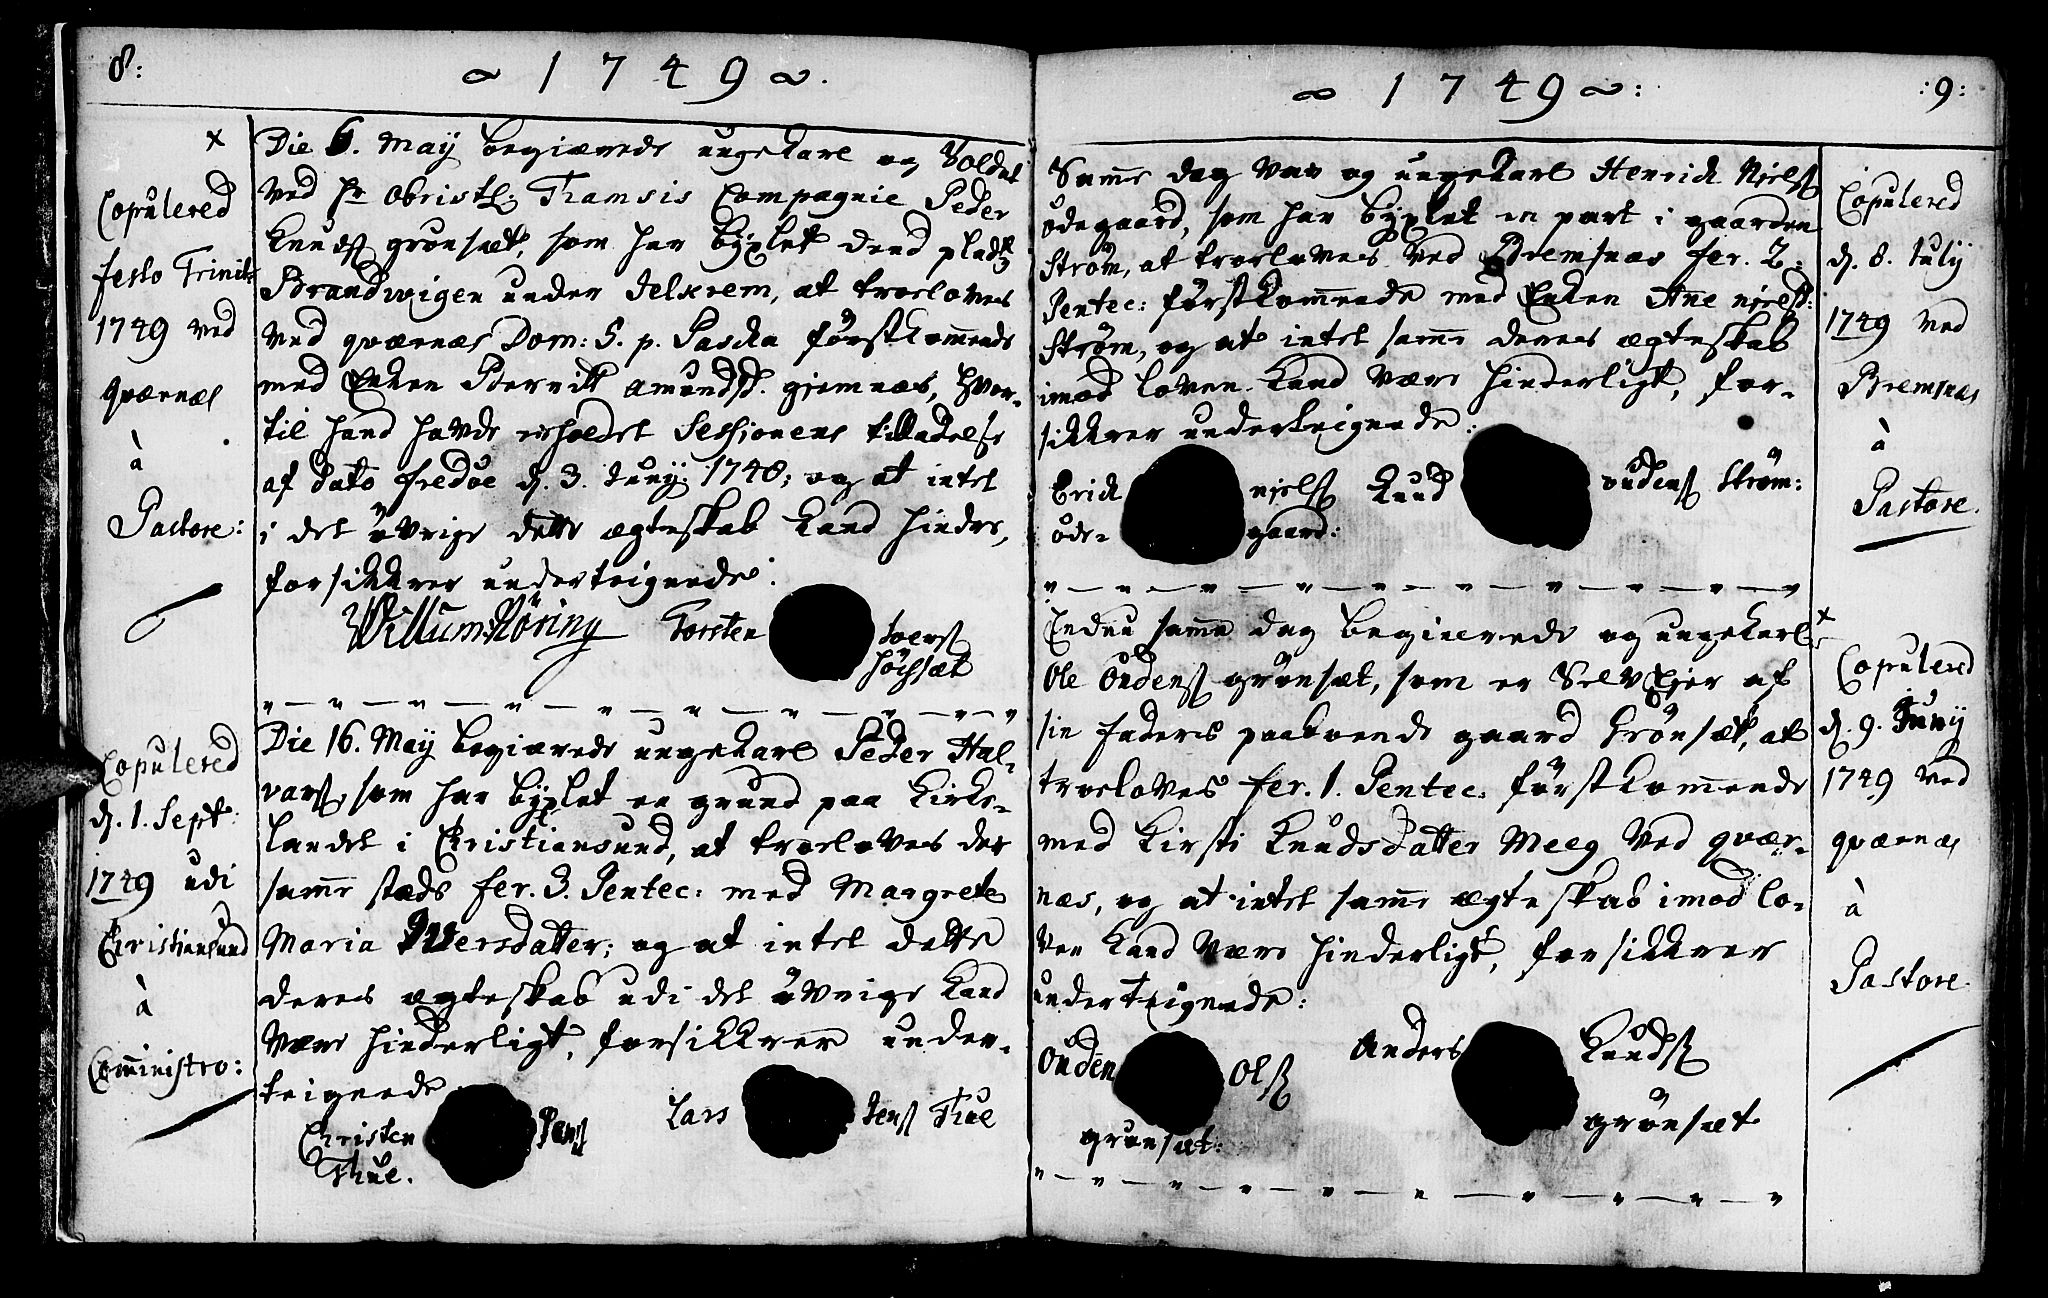 8:
1749
×
Copulered
festo Trinit:
1749 ved
qværnæs
à
Pastore:
Die 6. Maij begiærede ungekarl og Soldat
ved Hr Obristl: Thamsis Compagnie Peder
Knuds: grønsæt, som har byxlet dend plads
Brandwigen under Jelkrem, at troeloves
ved qværnæs Dom: 5. p. Pascha førstkom̄ende
med Enken Amundsd. gjemnæs, hvor-
til hand havde erholdet Sessionens tilladelse
af dato fredøe d. 3. Junij: 1748; og at intet
i det øvrige dette ægteskab kand hindre,
forsikkrer undertegnede:
Willum Röring Torsten Iversß
høhsæt
Copulered
d. 1. Sept:
1749 udi
Christiansund
à
Com̄inistro:
Die 16. Maij begiærede ungekarl Peder Hal-
varsß, som har byxlet en grund paa Kirke-
landet i Christiansund, at troeloves der
sam̄e stæds fer. 3. Pentec: med Margrete
Maria Iversdatter; og at intet dette
deres ægteskab udi det øvrige kand
være hinderligt, forsikkrer under-
teignede
Christen Jensß Lars Jensß Thue
Thue.
1749
:9:
Sam̄e dag var og ungekarl Henrich Nielsß
ødegaard, som har byxlet en part i gaarden
Strøm, at troeloves ved Bremsnæs fer. 2:
Pentec: førstkom̄ende med Enken Ane nielsd:
Strøm, og at intet sam̄e deres ægteskab
imod loven kand være hinderligt, for-
sikkrer underteignede:
Erich nielsß Knud oudensß Strøm:
øde- gaard:
Copulered
d. 8. Julij
1749 ved
Bremsnæs
à
Pastore.
Endnu sam̄e dag begierede og ungekarl
Ole Oudensß grønsæt, som er SelvEjer af
sin faders paaboende gaard Grønsæt, at
troeloves fer. 1. Pentec: førstkom̄ende
med Kirsti Knudsdatter Meeg ved qvær-
næs, og at intet sam̄e ægteskab imod lo-
ven kand være hinderligt, forsikkrer
underteignede:
Ouden Olsß Anders Knudsß
grønsæt: grønsæt
×
Copulered
d. 9. Junij
1749 ved
qværnæs
à
Pastore.